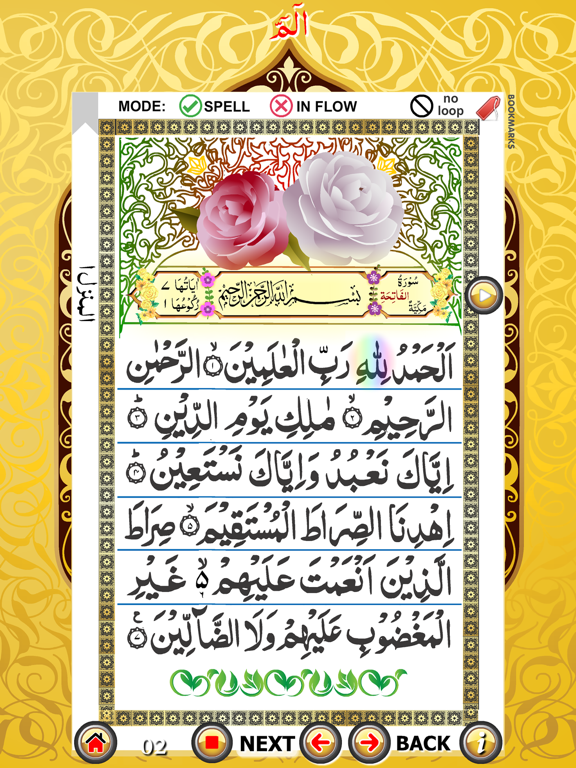 الٓمّٓ
MODE: SPELL IN FLOW no loop
BOOKMARKS
سُوْرَةُ الْفَاتِحَة مَكِّيَّةٌ
بِسْمِ اللّٰهِ الرَّحْمٰنِ الرَّحِيْمِ
اٰيَاتُهَا ٧ رُكُوْعُهَا ١
اَلْحَمْدُ لِلّٰهِ رَبِّ الْعٰلَمِيْنَ ۝١ الرَّحْمٰنِ
الرَّحِيْمِ ۝٢ مٰلِكِ يَوْمِ الدِّيْنِ ۝٣
اِيَّاكَ نَعْبُدُ وَاِيَّاكَ نَسْتَعِيْنُ ۝٤
اِهْدِنَا الصِّرَاطَ الْمُسْتَقِيْمَ ۝٥ صِرَاطَ
الَّذِيْنَ اَنْعَمْتَ عَلَيْهِمْ ۵ غَيْرِ
الْمَغْضُوْبِ عَلَيْهِمْ وَلَا الضَّآلِّيْنَ ۝٧
02 NEXT BACK i